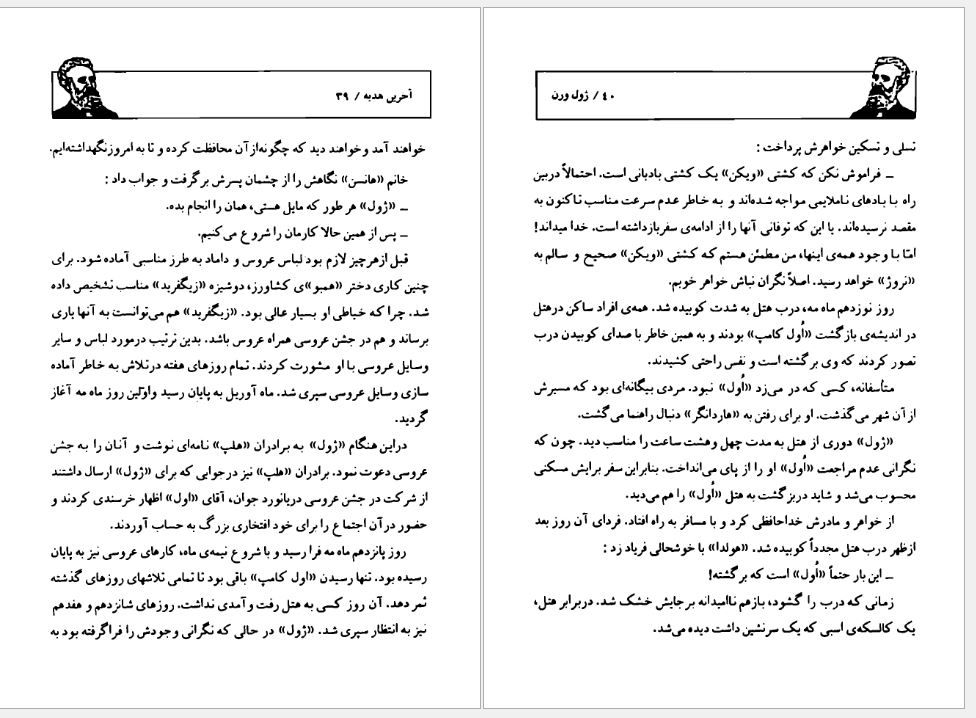 آخرین هدیه / ۳۹
خواهند آمد و خواهند دید که چگونه از آن محافظت کرده و تا به امروز نگهداشته‌ایم.
خانم «هانسن» نگاهش را از چشمان پسرش برگرفت و جواب داد :
ـ «ژول» هر طور که مایل هستی، همان را انجام بده.
ـ پس از همین حالا کارمان را شروع می‌کنیم.
قبل از هرچیز لازم بود لباس عروس و داماد به طرز مناسبی آماده شود. برای
چنین کاری دختر «همبو»ی کشاورز، دوشیزه «زیگفرید» مناسب تشخیص داده
شد. چرا که خیاطی او بسیار عالی بود. «زیگفرید» هم می‌توانست به آنها یاری
برساند و هم در جشن عروسی همراه عروس باشد. بدین ترتیب درمورد لباس و سایر
وسایل عروسی با او مشورت کردند. تمام روزهای هفته درتلاش به خاطر آماده
سازی وسایل عروسی سپری شد. ماه آوریل به پایان رسید واوّلین روز ماه مه آغاز
گردید.
دراین هنگام «ژول» به برادران «هلپ» نامه‌ای نوشت و آنان را به جشن
عروسی دعوت نمود. برادران «هلپ» نیز درجوابی که برای «ژول» ارسال داشتند
از شرکت در جشن عروسی دریانورد جوان، آقای «اول» اظهار خرسندی کردند و
حضور درآن اجتماع را برای خود افتخاری بزرگ به حساب آوردند.
روز پانزدهم ماه مه فرا رسید و با شروع نیمه‌ی ماه، کارهای عروسی نیز به پایان
رسیده بود. تنها رسیدن «اول کامپ» باقی بود تا تمامی تلاشهای روزهای گذشته
ثمر دهد. آن روز کسی به هتل رفت و آمدی نداشت. روزهای شانزدهم و هفدهم
نیز به انتظار سپری شد. «ژول» در حالی که نگرانی وجودش را فراگرفته بود به
۴۰ / ژول ورن
تسلی و تسکین خواهرش پرداخت :
ـ فراموش نکن که کشتی «ویکن» یک کشتی بادبانی است. احتمالاً دربین
راه با بادهای ناملایمی مواجه شده‌اند و به خاطر عدم سرعت مناسب تاکنون به
مقصد نرسیده‌اند. یا این که توفانی آنها را از ادامه‌ی سفربازداشته است. خدا میداند!
امّا با وجود همه‌ی اینها، من مطمئن هستم که کشتی «ویکن» صحیح و سالم به
«نروژ» خواهد رسید. اصلاً نگران نباش خواهر خوبم.
روز نوزدهم ماه مه، درب هتل به شدت کوبیده شد. همه‌ی افراد ساکن درهتل
در اندیشه‌ی بازگشت «اُول کامپ» بودند و به همین خاطر با صدای کوبیدن درب
تصور کردند که وی برگشته است و نفس راحتی کشیدند.
متأسفانه، کسی که در می‌زد «اُول» نبود. مردی بیگانه‌ای بود که مسیرش
از آن شهر می‌گذشت. او برای رفتن به «هاردانگر» دنبال راهنما می‌گشت.
«ژول» دوری از هتل به مدت چهل وهشت ساعت را مناسب دید. چون که
نگرانی عدم مراجعت «اُول» او را از پای می‌انداخت. بنابراین سفر برایش مسکنی
محسوب می‌شد و شاید دربرگشت به هتل «اُول» را هم می‌دید.
از خواهر و مادرش خداحافظی کرد و با مسافر به راه افتاد. فردای آن روز بعد
ازظهر درب هتل مجدداً کوبیده شد. «هولدا» با خوشحالی فریاد زد :
ـ این بار حتماً «اُول» است که برگشته!
زمانی که درب را گشود، بازهم ناامیدانه برجایش خشک شد. دربرابر هتل،
یک کالسکه‌ی اسبی که یک سرنشین داشت دیده می‌شد.